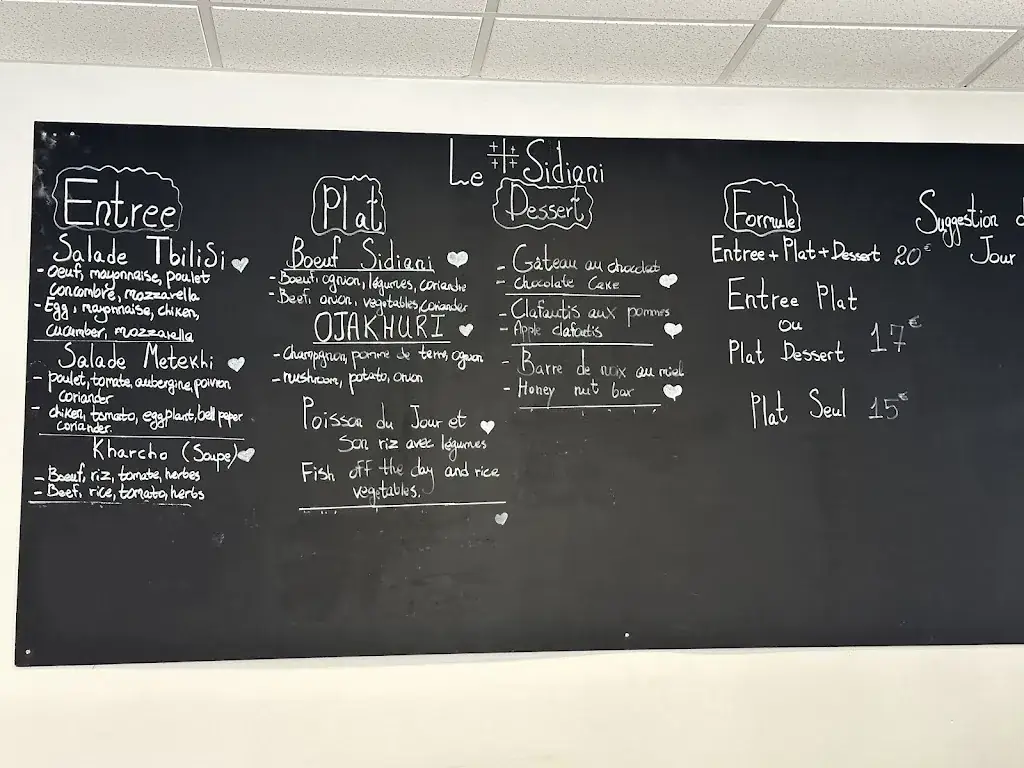 Le Sidiani
Entree
Salade TbiliSi
- oeuf, mayonnaise, poulet
concombre, mozzarella
- Egg, mayonnaise, chiken,
cucumber, mozzarella
Salade Metekhi
- poulet, tomate, aubergine, poivron
coriander
- chiken, tomato, eggplant, bell peper
coriander.
Kharcho (Soupe)
- Boeuf, riz, tomate, herbes
- Beef, rice, tomato, herbs
Plat
Boeuf Sidiani
- Boeuf, ognon, légumes, coriandre
- Beef, onion, vegetables, coriander
OJAKHURI
- champignon, pomme de terre, ognon
- mushroom, potato, onion
Poisson du Jour et
son riz avec légumes
Fish off the day and rice
vegetables.
Dessert
- Gâteau au chocolat
- chocolate cake
- Clafoutis aux pommes
- Apple clafoutis
- Barre de noix au miel
- Honey nut bar
Formule
Entree + Plat + Dessert 20€
Entree Plat
ou
Plat Dessert
17€
Plat Seul 15€
Suggestion d
Jour